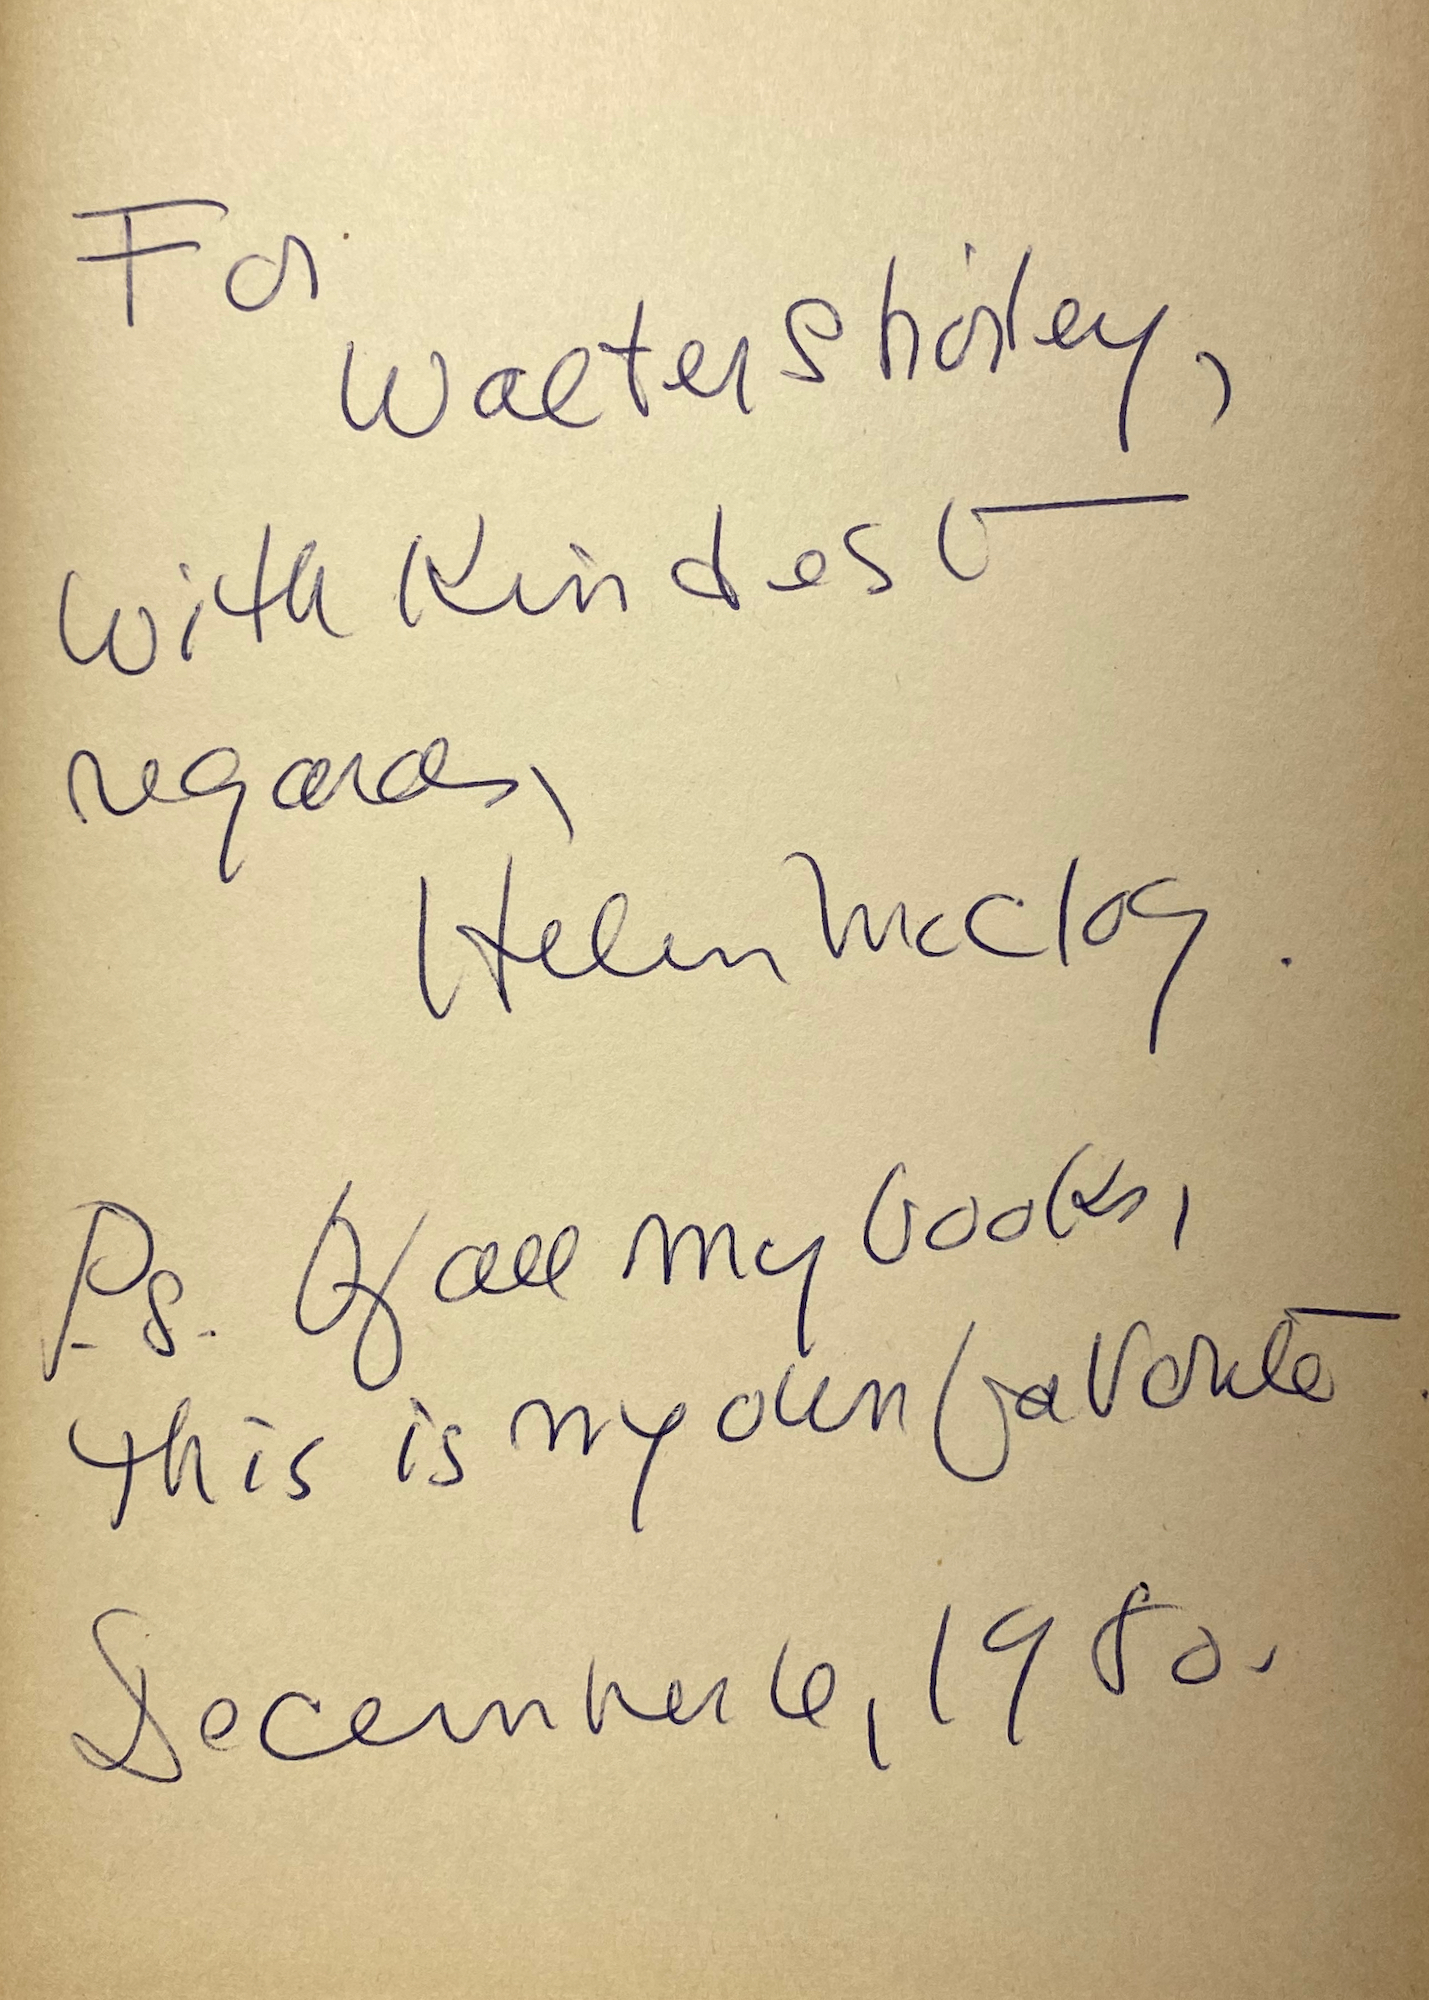 For
Walter Shirley,
with kindest
regards,
Helen McCloy.
P.S. Of all my books,
this is my own favorite.
December 6, 1980.